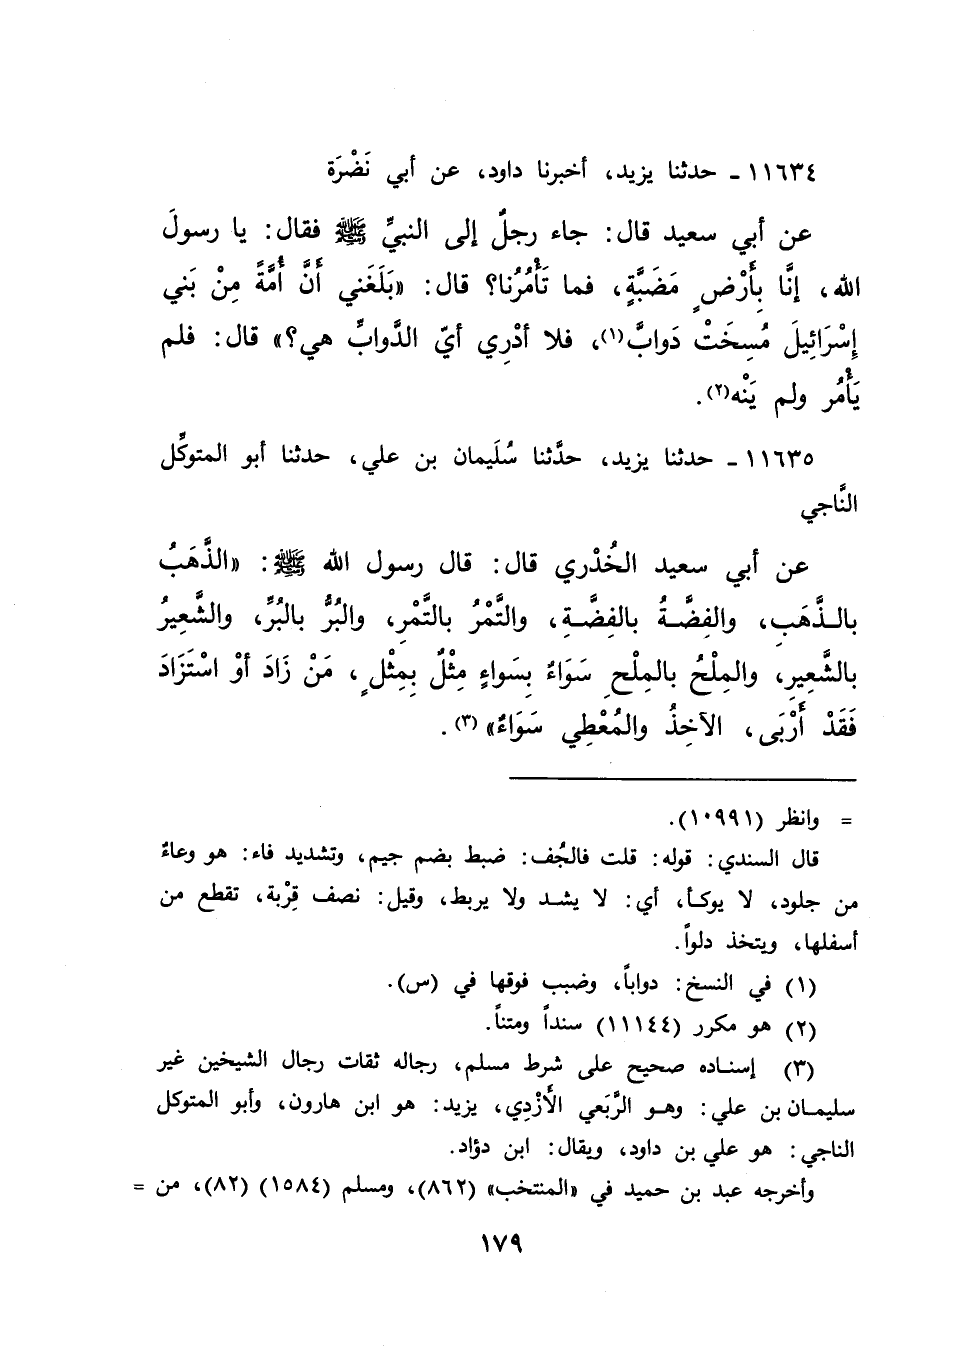 ١١٦٣٤ - حدثنا يزيد، أخبرنا داود، عن أبي نَضْرَة
عن أبي سعيد قال: جاء رجلٌ إلى النبيِّ ﷺ فقال: يا رسولَ
الله، إنَّا بِأَرْضٍ مَضَبَّةٍ، فما تَأْمُرُنا؟ قال: «بَلَغَني أَنَّ أُمَّةً مِنْ بَني
إِسْرَائِيلَ مُسِخَتْ دَوابَّ(١)، فلا أدْرِي أيّ الدَّوابِّ هي؟» قال: فلم
يَأْمُر ولم يَنْه(٢).
١١٦٣٥ - حدثنا يزيد، حدَّثنا سُلَيمان بن علي، حدثنا أبو المتوكِّل
النَّاجي
عن أبي سعيد الخُدْري قال: قال رسول الله ﷺ: «الذَّهَبُ
بالـذَّهَبِ، والفِضَّـةُ بالفِضَّـةِ، والتَّمْرُ بالتَّمْرِ، والبُرُّ بالبُرِّ، والشَّعِيرُ
بالشَّعِيرِ، والمِلْحُ بالمِلْحِ سَوَاءٌ بِسَواءٍ مِثْلٌ بِمِثْلٍ، مَنْ زَادَ أوْ اسْتَزَادَ
فَقَدْ أَرْبَى، الآخِذُ والمُعْطِي سَوَاءٌ» (٣).
= وانظر (١٠٩٩١).
قال السندي: قوله: قلت فالجُف: ضبط بضم جيم، وتشديد فاء: هو وعاءٌ
من جلود، لا يوكـأ، أي: لا يشـد ولا يربط، وقيل: نصف قِرْبة، تقطع من
أسفلها، ويتخذ دلواً.
(١) في النسخ: دواباً، وضبب فوقها في (س).
(٢) هو مكرر (١١١٤٤) سنداً ومتناً.
(٣) إسنـاده صحيح على شرط مسلم، رجاله ثقات رجال الشيخين غير
سليمـان بن علي: وهـو الرَّبَعي الأَزْدِي، يزيد: هو ابن هارون، وأبو المتوكل
الناجي: هو علي بن داود، ويقال: ابن دؤاد.
وأخرجه عبد بن حميد في «المنتخب» (٨٦٢)، ومسلم (١٥٨٤) (٨٢)، من =
١٧٩